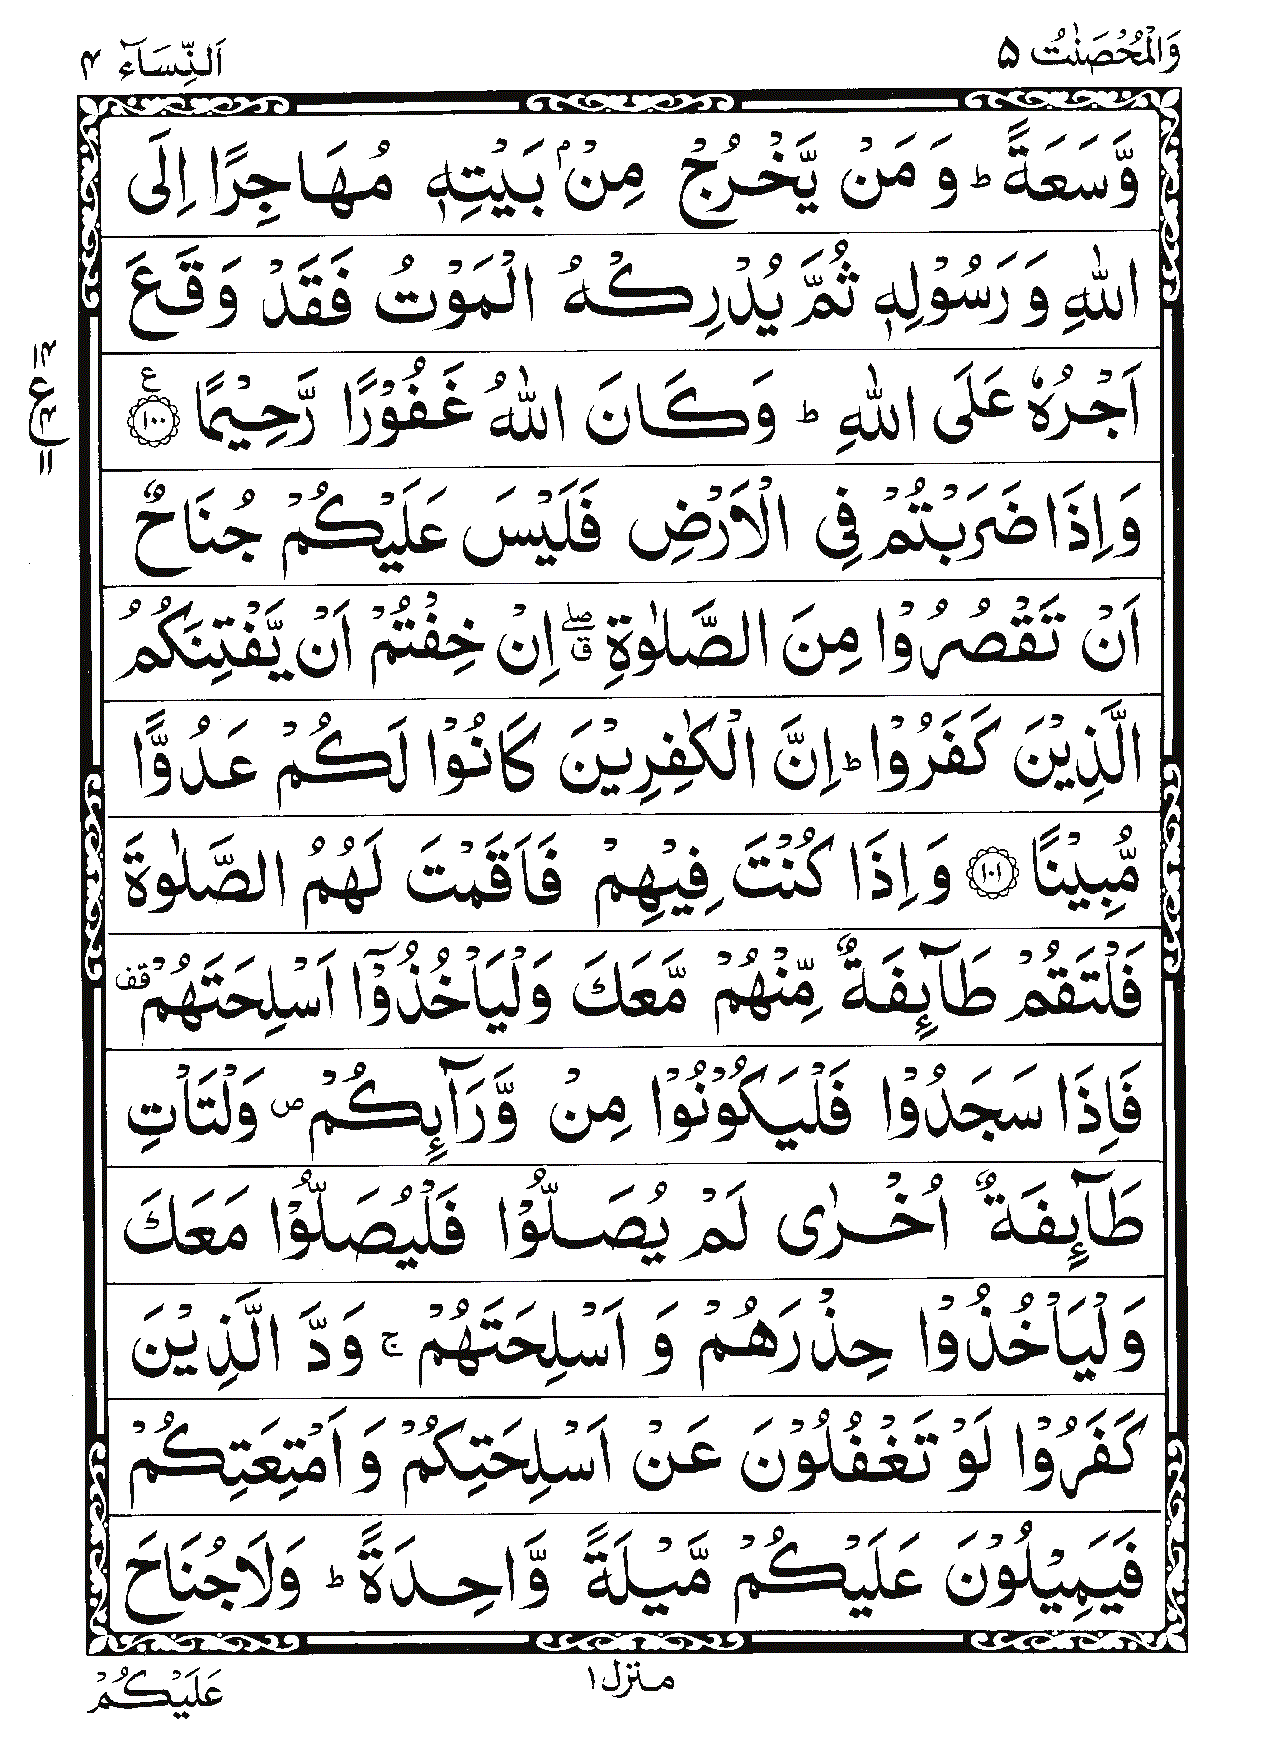 وَالْمُحْصَنٰتُ ۵
اَلنِّسَآء ۴
وَّسَعَةً ؕ وَ مَنْ يَّخْرُجْ مِنْۢ بَيْتِهٖ مُهَاجِرًا اِلَى
اللّٰهِ وَ رَسُوْلِهٖ ثُمَّ يُدْرِكْهُ الْمَوْتُ فَقَدْ وَقَعَ
اَجْرُهٗ عَلَى اللّٰهِ ؕ وَكَانَ اللّٰهُ غَفُوْرًا رَّحِيْمًا ۧ ﴿۱۰۰﴾
۱۴
ع
۴
۱۱
وَاِذَا ضَرَبْتُمْ فِى الْاَرْضِ فَلَيْسَ عَلَيْكُمْ جُنَاحٌ
اَنْ تَقْصُرُوْا مِنَ الصَّلٰوةِ ۖۗ اِنْ خِفْتُمْ اَنْ يَّفْتِنَكُمُ
الَّذِيْنَ كَفَرُوْا ؕ اِنَّ الْكٰفِرِيْنَ كَانُوْا لَكُمْ عَدُوًّا
مُّبِيْنًا ﴿۱۰۱﴾ وَاِذَا كُنْتَ فِيْهِمْ فَاَقَمْتَ لَهُمُ الصَّلٰوةَ
فَلْتَقُمْ طَآئِفَةٌ مِّنْهُمْ مَّعَكَ وَلْيَاْخُذُوْۤا اَسْلِحَتَهُمْ قف
فَاِذَا سَجَدُوْا فَلْيَكُوْنُوْا مِنْ وَّرَآئِكُمْ ص وَلْتَاْتِ
طَآئِفَةٌ اُخْرٰى لَمْ يُصَلُّوْا فَلْيُصَلُّوْا مَعَكَ
وَلْيَاْخُذُوْا حِذْرَهُمْ وَ اَسْلِحَتَهُمْ ج وَدَّ الَّذِيْنَ
كَفَرُوْا لَوْ تَغْفُلُوْنَ عَنْ اَسْلِحَتِكُمْ وَ اَمْتِعَتِكُمْ
فَيَمِيْلُوْنَ عَلَيْكُمْ مَّيْلَةً وَّاحِدَةً ؕ وَلَا جُنَاحَ
منزل ۱
عَلَيْكُمْ